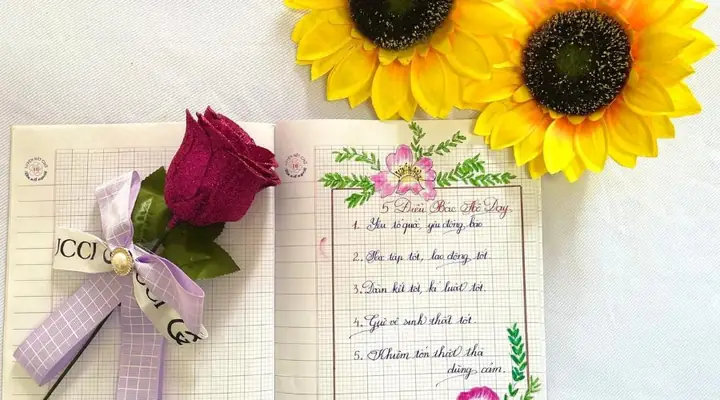 5 Điều Bác Hồ Dạy
1. Yêu tổ quốc, yêu đồng bào
2. Học tập tốt, lao động tốt.
3. Đoàn kết tốt, kỉ luật tốt.
4. Giữ vệ sinh thật tốt.
5. Khiêm tốn thật thà
dũng cảm.
UCCI G
UCCI G